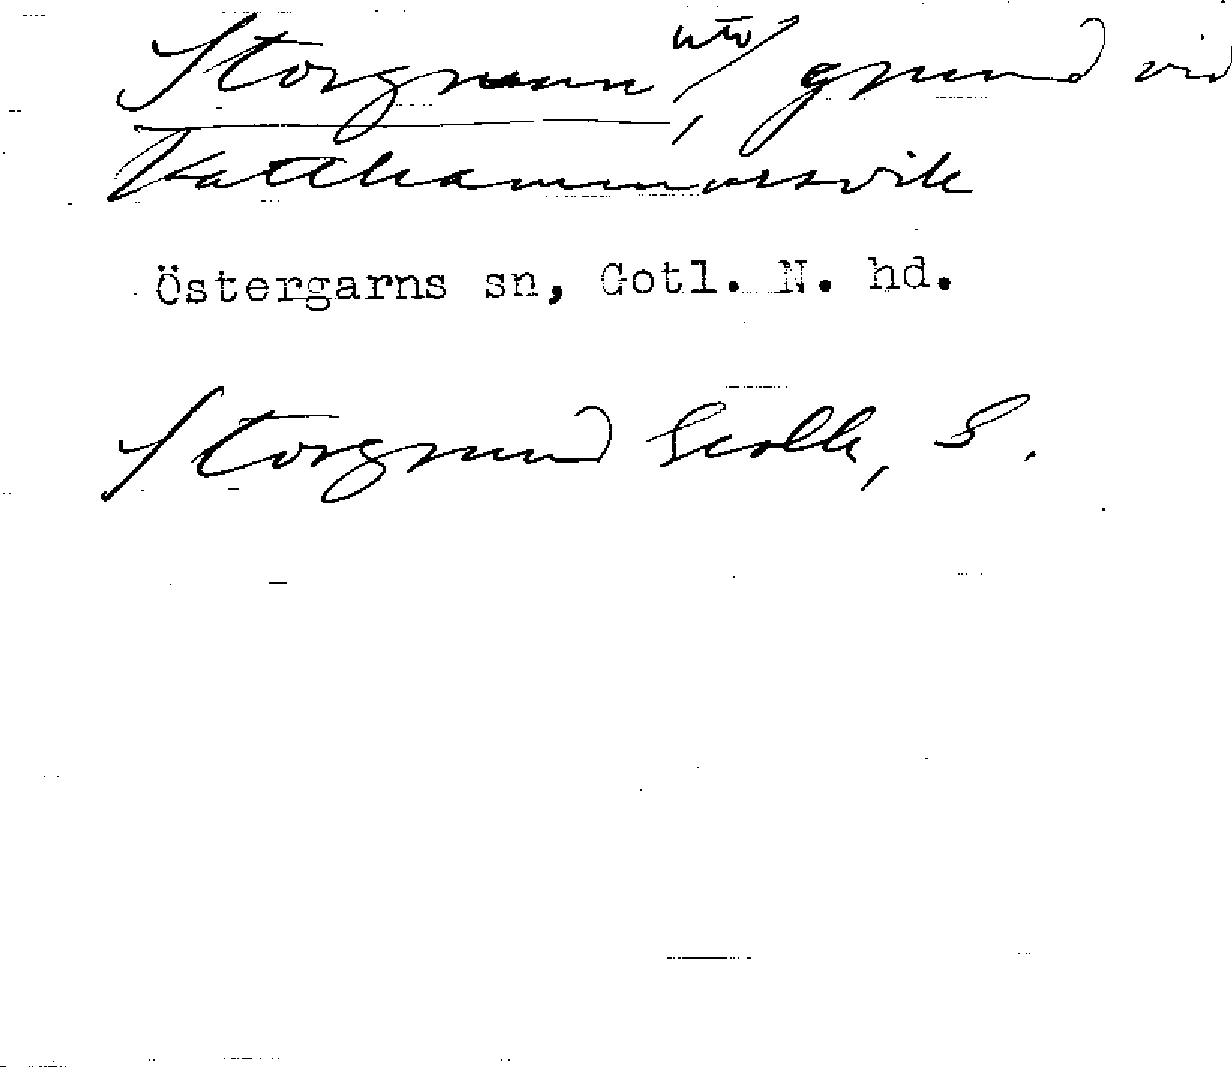 Storgrunn, grund vid
Katthammarsvik
Östergarns sn, Gotl. N. hd.
Storgrund Geolk, S.